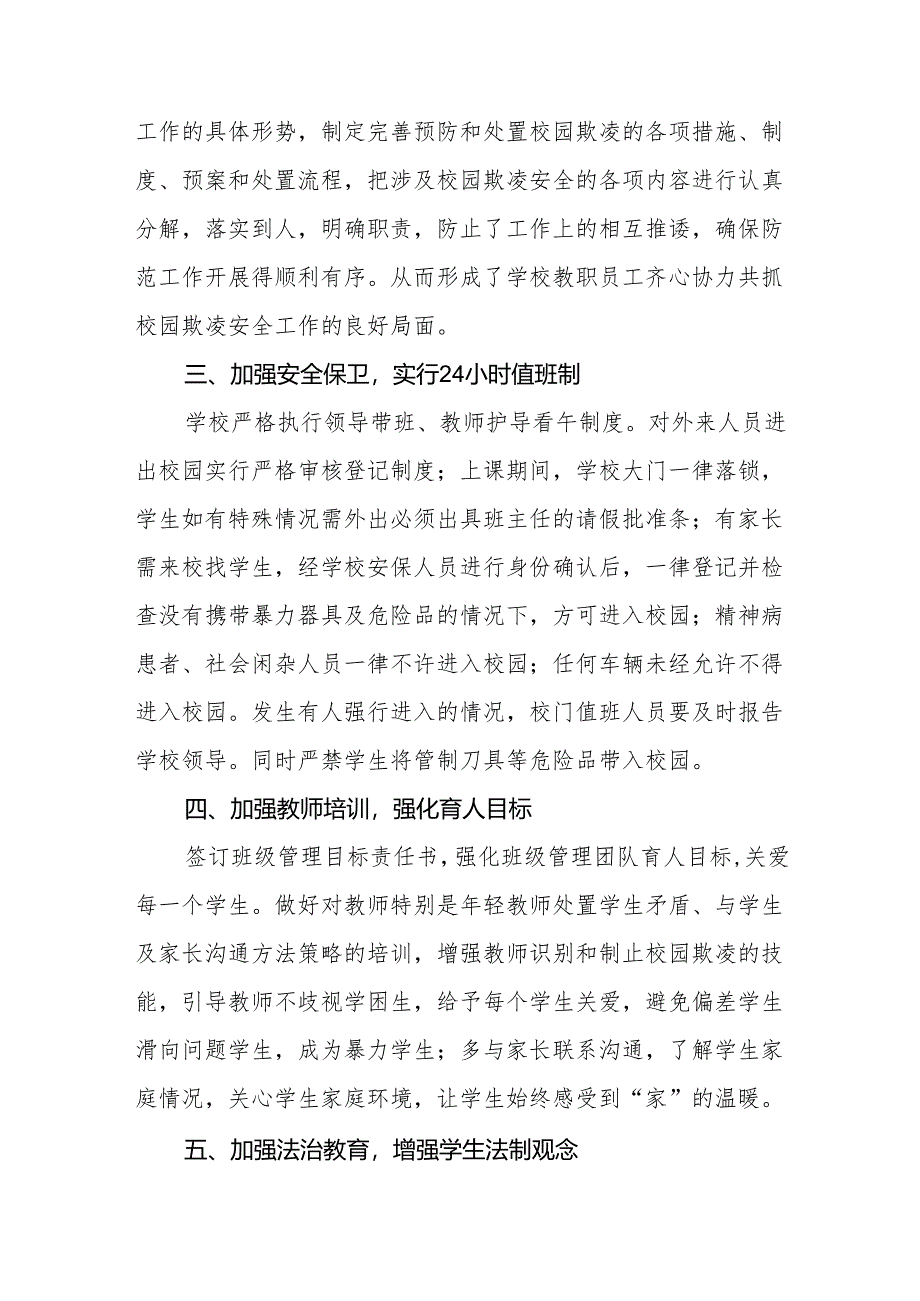 工作的具体形势，制定完善预防和处置校园欺凌的各项措施、制
度、预案和处置流程，把涉及校园欺凌安全的各项内容进行认真
分解，落实到人，明确职责，防止了工作上的相互推诿，确保防
范工作开展得顺利有序。从而形成了学校教职员工齐心协力共抓
校园欺凌安全工作的良好局面。
三、加强安全保卫，实行24小时值班制
学校严格执行领导带班、教师护导看午制度。对外来人员进
出校园实行严格审核登记制度；上课期间，学校大门一律落锁，
学生如有特殊情况需外出必须出具班主任的请假批准条；有家长
需来校找学生，经学校安保人员进行身份确认后，一律登记并检
查没有携带暴力器具及危险品的情况下，方可进入校园；精神病
患者、社会闲杂人员一律不许进入校园；任何车辆未经允许不得
进入校园。发生有人强行进入的情况，校门值班人员要及时报告
学校领导。同时严禁学生将管制刀具等危险品带入校园。
四、加强教师培训，强化育人目标
签订班级管理目标责任书,强化班级管理团队育人目标,关爱
每一个学生。做好对教师特别是年轻教师处置学生矛盾、与学生
及家长沟通方法策略的培训，增强教师识别和制止校园欺凌的技
能，引导教师不歧视学困生，给予每个学生关爱，避免偏差学生
滑向问题学生，成为暴力学生；多与家长联系沟通，了解学生家
庭情况，关心学生家庭环境，让学生始终感受到“家”的温暖。
五、加强法治教育，增强学生法制观念